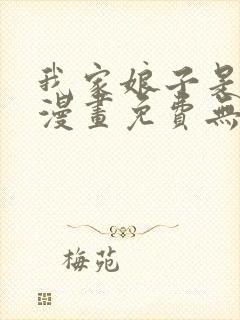 我家娘子是
漫畫免費無
梅苑